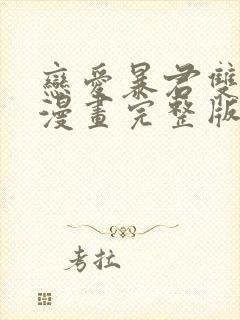 戀愛暴君雙
漫畫完整版
考拉